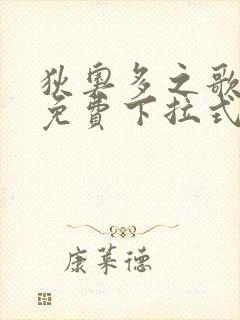 狄奥多之歌
免費下拉式
康莱德